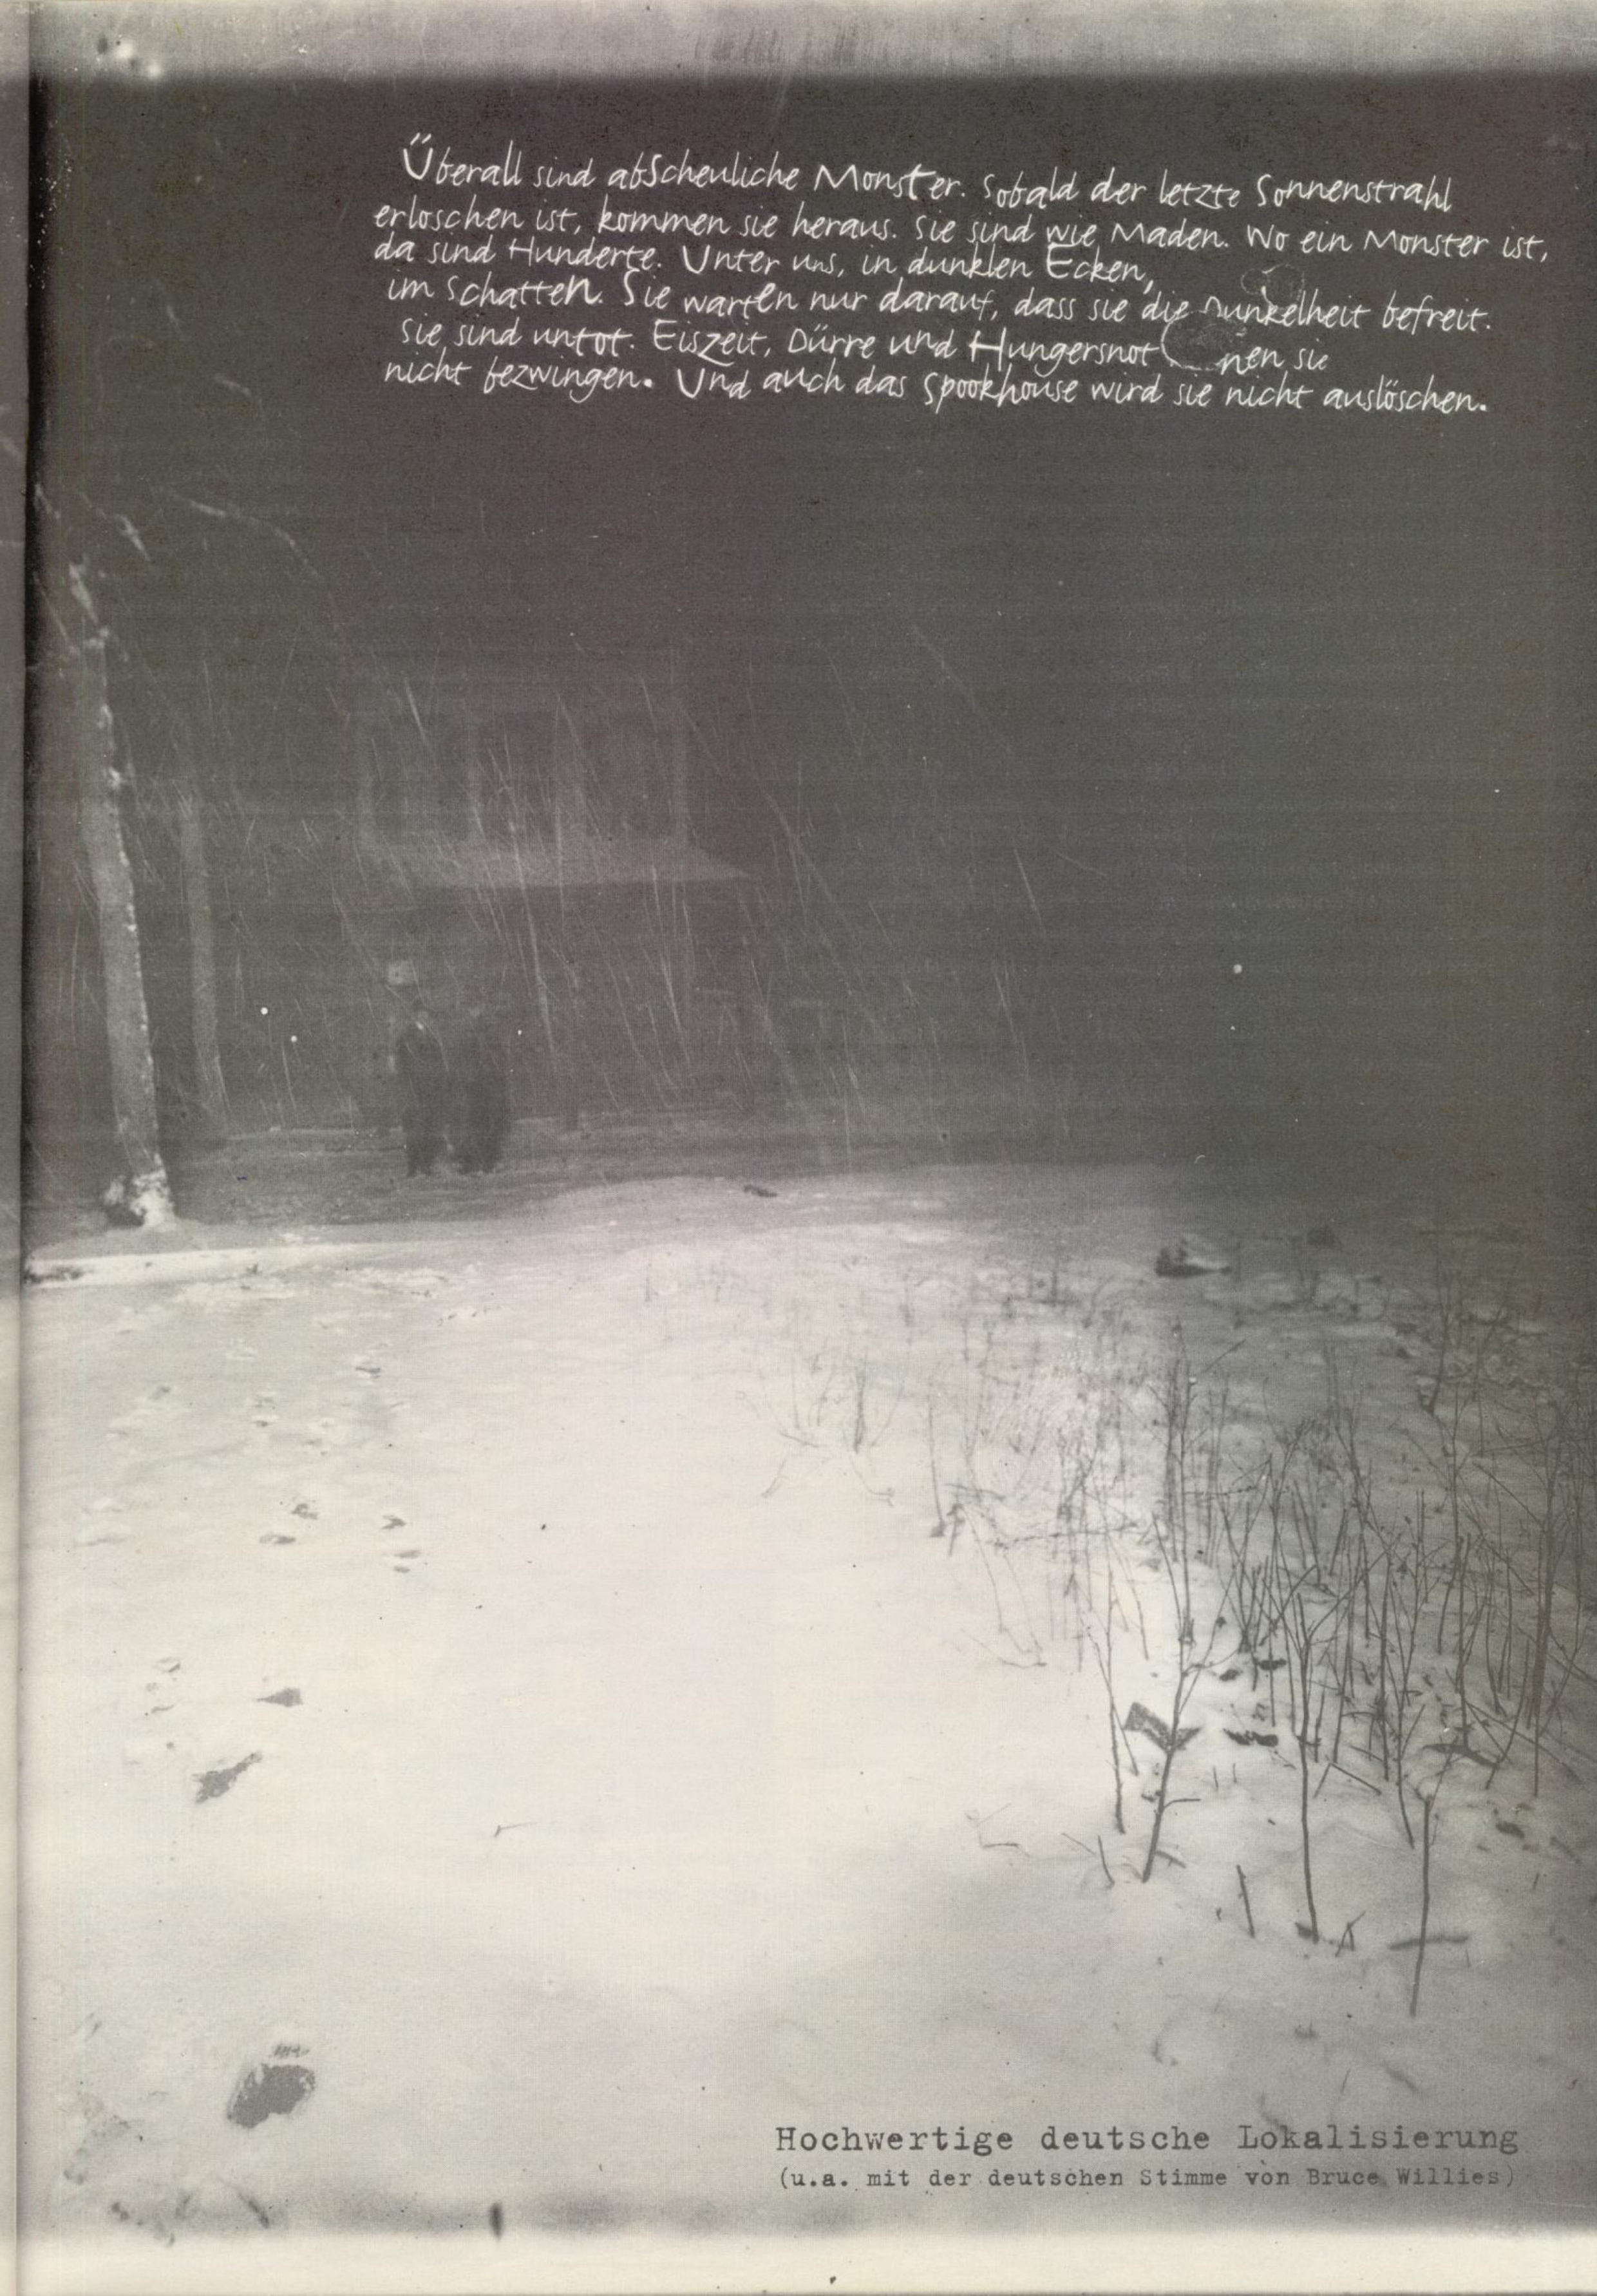 Überall sind abscheuliche Monster. Sobald der letzte Sonnenstrahl
erloschen ist, kommen sie heraus. Sie sind wie Maden. Wo ein Monster ist,
da sind Hunderte. Unter uns, in dunklen Ecken,
im Schatten. Sie warten nur darauf, dass sie die Dunkelheit befreit.
Sie sind untot. Eiszeit, Dürre und Hungersnot nen sie
nicht bezwingen. Und auch das Spookhouse wird sie nicht auslöschen.
Hochwertige deutsche Lokalisierung
(u.a. mit der deutschen Stimme von Bruce Willies)